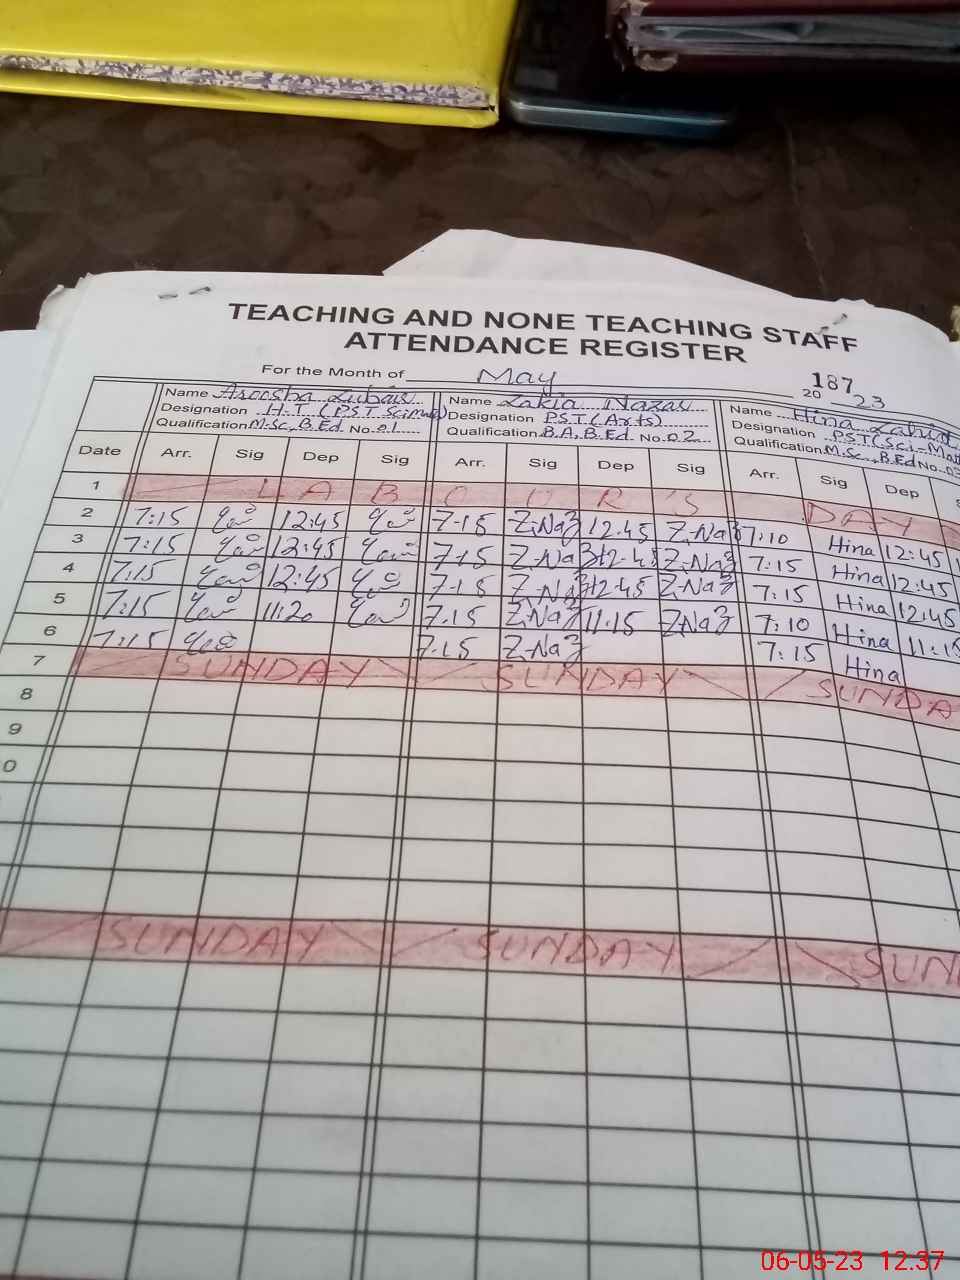 TEACHING AND NONE TEACHING STAFF
ATTENDANCE REGISTER
For the Month of May 187 20 23
Name Aroosha Zubair Name Zakia Nazar Name Hina Zahid
Designation H.T (PST Science) Designation PST (Arts) Designation PST (Sci-Math
Qualification M.Sc, B.Ed. No. 01 Qualification B.A, B.Ed. No. 02 Qualification M.Sc., B.Ed No. 03
Date Arr. Sig Dep Sig Arr. Sig Dep Sig Arr. Sig Dep
1 LABOUR'S DAY
2 7:15 12:45 7-15 Z.Naz 12.45 Z.Naz 7:10 Hina 12:45
3 7:15 12:45 7-15 Z.Naz 12-45 Z.Naz 7:15 Hina 12:45
4 7:15 12:45 7-15 Z.Naz 12-45 Z.Naz 7:15 Hina 12:45
5 7:15 11:20 7.15 Z.Naz 11:15 Z.Naz 7:10 Hina 11:15
6 7:15 7.15 Z.Naz 7:15 Hina
7 SUNDAY SUNDAY SUNDA
8
9
0
SUNDAY SUNDAY SUN
06-05-23 12.37